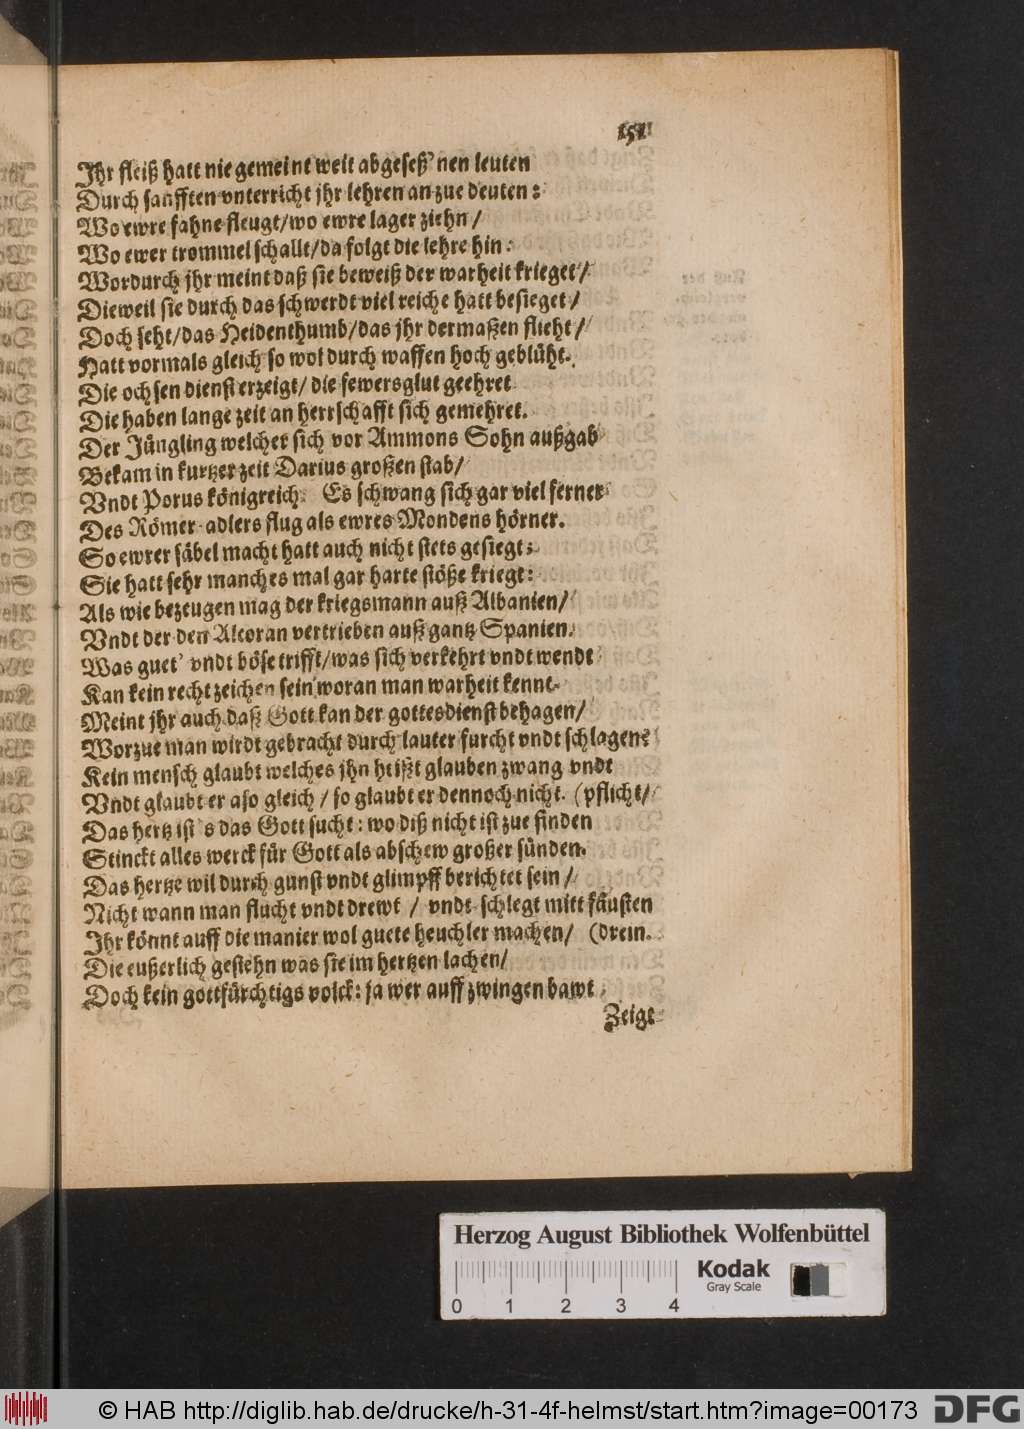 151
Ihr fleiß hatt nie gemeint weit abgeseß'nen leuten
Durch sanfften vnterricht jhr lehren an zue deuten:
Wo ewre fahne fleugt/wo ewre lager ziehn/
Wo ewer trommel schallt/da folgt die lehre hin:
Wordurch jhr meint daß sie beweiß der warheit krieget/
Dieweil sie durch das schwerdt viel reiche hatt besieget/
Doch seht/das Heidenthumb/das jhr dermaßen flieht/
Hatt vormals gleich so wol durch waffen hoch geblüht.
Die ochsen dienst erzeigt/ die fewersglut geehret
Die haben lange zeit an herrschafft sich gemehret.
Der Jüngling welcher sich vor Ammons Sohn außgab
Bekam in kurtzer zeit Darius großen stab/
Vndt Porus königreich. Es schwang sich gar viel ferner
Des Römer adlers flug als ewres Mondens hörner.
So ewrer säbel macht hatt auch nicht stets gesiegt;
Sie hatt sehr manches mal gar harte stöße kriegt:
Als wie bezeugen mag der kriegsmann auß Albanien/
Vndt der den Alcoran vertrieben auß gantz Spanien.
Was guet' vndt böse trifft/was sich verkehrt vndt wendt
Kan kein recht zeichen sein woran man warheit kennt.
Meint jhr auch daß Gott kan der gottesdienst behagen/
Worzue man wirdt gebracht durch lauter furcht vndt schlagen?
Kein mensch glaubt welches jhn heißt glauben zwang vndt
Vndt glaubt er aso gleich/so glaubt er dennoch nicht. (pflicht/
Das hertz ist's das Gott sucht: wo diß nicht ist zue finden
Stinckt alles werck für Gott als abschew großer sünden.
Das hertze wil durch gunst vndt glimpff berichtet sein/
Nicht wann man flucht vndt drewt/ vndt schlegt mitt fäusten
Ihr könnt auff die manier wol guete heuchler machen/ (drein.
Die eußerlich gestehn was sie im hertzen lachen/
Doch kein gottfürchtigs volck: ja wer auff zwingen bawt
Zeigt
Herzog August Bibliothek Wolfenbüttel
Kodak
Gray Scale
0 1 2 3 4
© HAB http://diglib.hab.de/drucke/h-31-4f-helmst/start.htm?image=00173
DFG